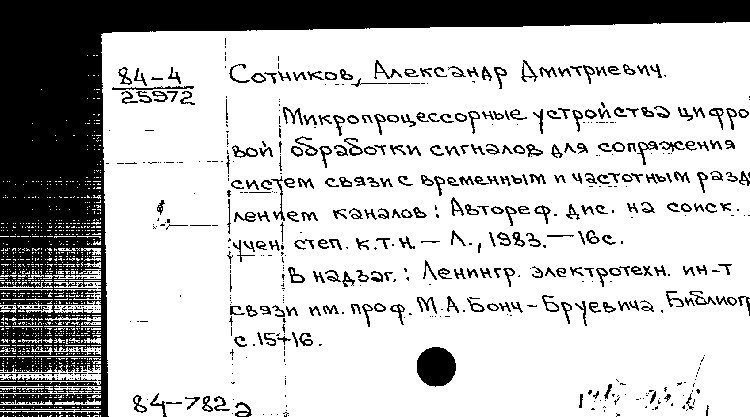 84-4
25972
Сотников, Александр Дмитриевич.
Микропроцессорные устройства цифро
вой обработки сигналов для сопряжения
систем связи с временным и частотным разд
лением каналов: Автореф. дис. на соиск.
учен. степ. к.т.н. - Л., 1983. - 16с.
В надзаг.: Ленингр. электротехн. ин-т
связи им. проф. М.А.Бонч-Бруевича. Библиогр
с.15-16.
84-782 а